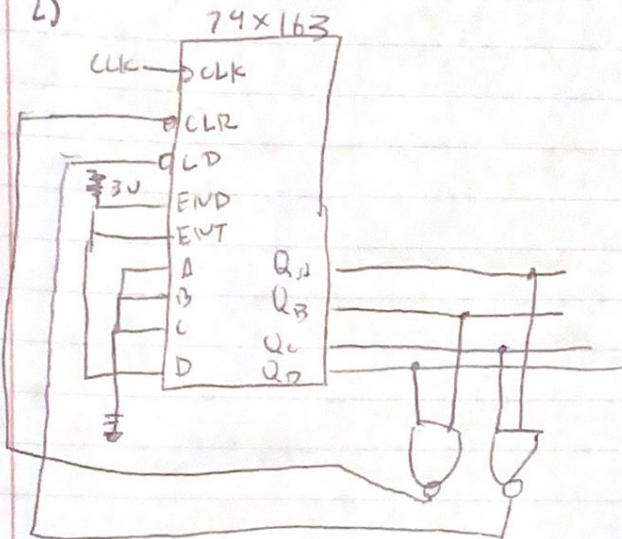 2)
74x163
CLK
CLK
CLR
LD
3V
ENP
ENT
A
QA
B
QB
C
QC
D
QD